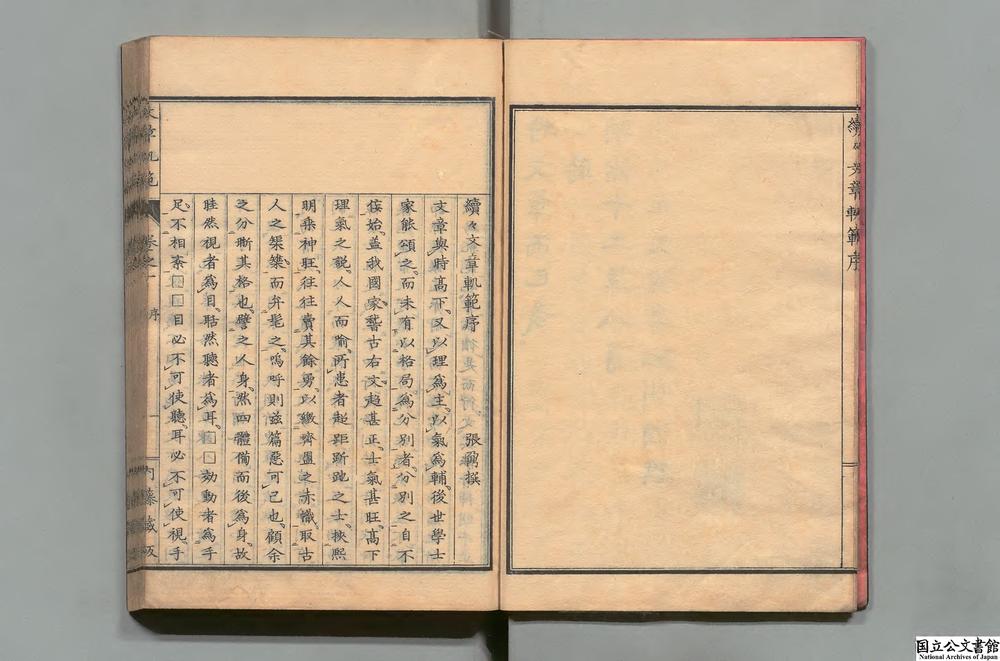 續文章軌範序
續々文章軌範序 張鵬撰
文章與時高下又以理爲主以氣爲輔後世學士
家能頌之而未有以格局爲分別者分別之自不
佞始蓋我國家稽古右文趨甚正士氣甚旺高下
理氣之說人人而喻所患者起距斯跎之士挾熙
明乘神旺往往賣其餘勇以繳齊盟之赤幟取古
人之榘篗而弁髦之嗚呼則茲篇惡可已也顧余
之分斷其格也譬之人身然四體備而後爲身故
眭然視者爲目聒然聽者爲耳□□効動者爲手
足不相紊□□目必不可使聽耳必不可使視手
文章軌範
卷之
序
內藤藏版
国立公文書館
National Archives of Japan